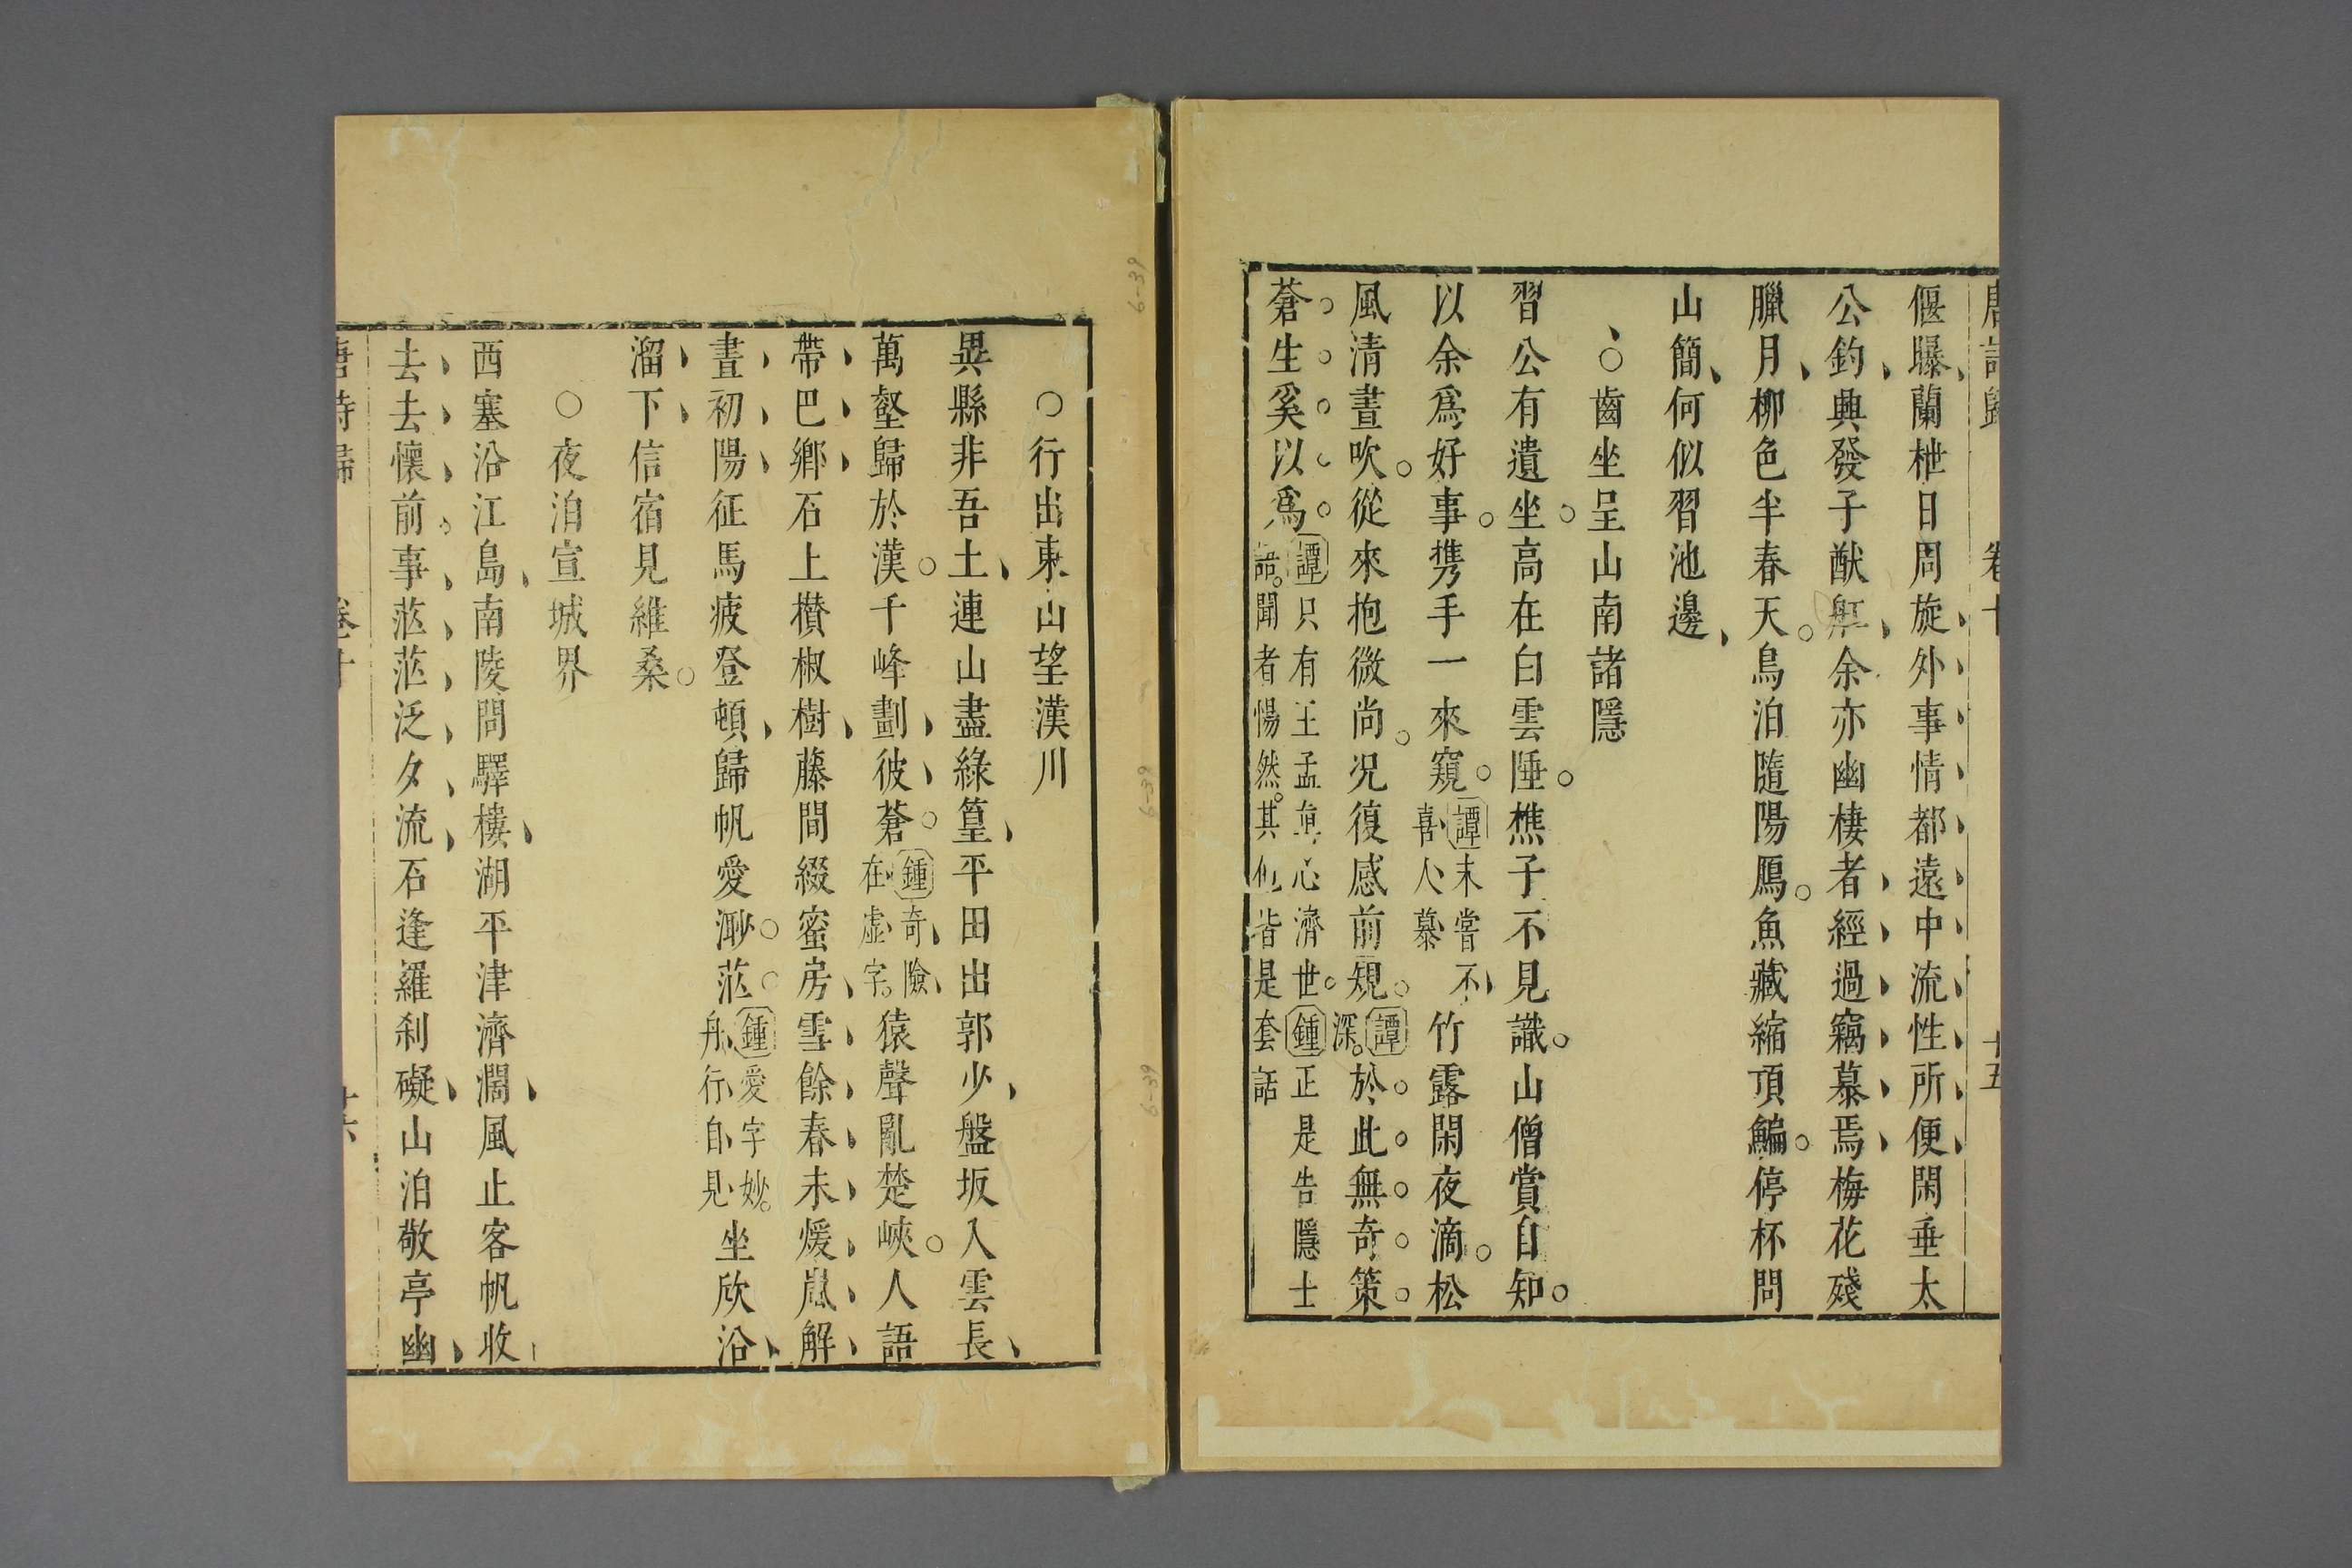 唐詩歸 卷十 十五
偃曝蘭枻日周旋外事情都遠中流性所便閑垂太
公釣興發子猷舡余亦幽棲者經過竊慕焉梅花殘
臘月柳色半春天鳥泊隨陽鴈魚藏縮項鯿停杯問
山簡何似習池邊
○齒坐呈山南諸隱
習公有遺坐高在白雲陲樵子不見識山僧賞自知
以余爲好事携手一來窺譚未嘗不喜人慕竹露閑夜滴松
風清晝吹從來抱微尚况復感前規譚深於此無奇策
蒼生奚以爲譚只有王孟眞心濟世鍾正是告隱士
語聞者惕然其他皆是套話
○行出東山望漢川
異縣非吾土連山盡綠篁平田出郭少盤坂入雲長
萬壑歸於漢千峰劃彼蒼鍾奇險在虛字猿聲亂楚峽人語
帶巴鄉石上攅椒樹藤間綴蜜房雪餘春未煖嵐解
晝初陽征馬疲登頓歸帆愛渺茫鍾愛字妙舟行自見坐欣沿
溜下信宿見維桑
○夜泊宣城界
西塞沿江島南陵問驛樓湖平津濟濶風止客帆收
去去懷前事茫茫泛夕流石逢羅刹礙山泊敬亭幽
唐詩歸 卷十 十六